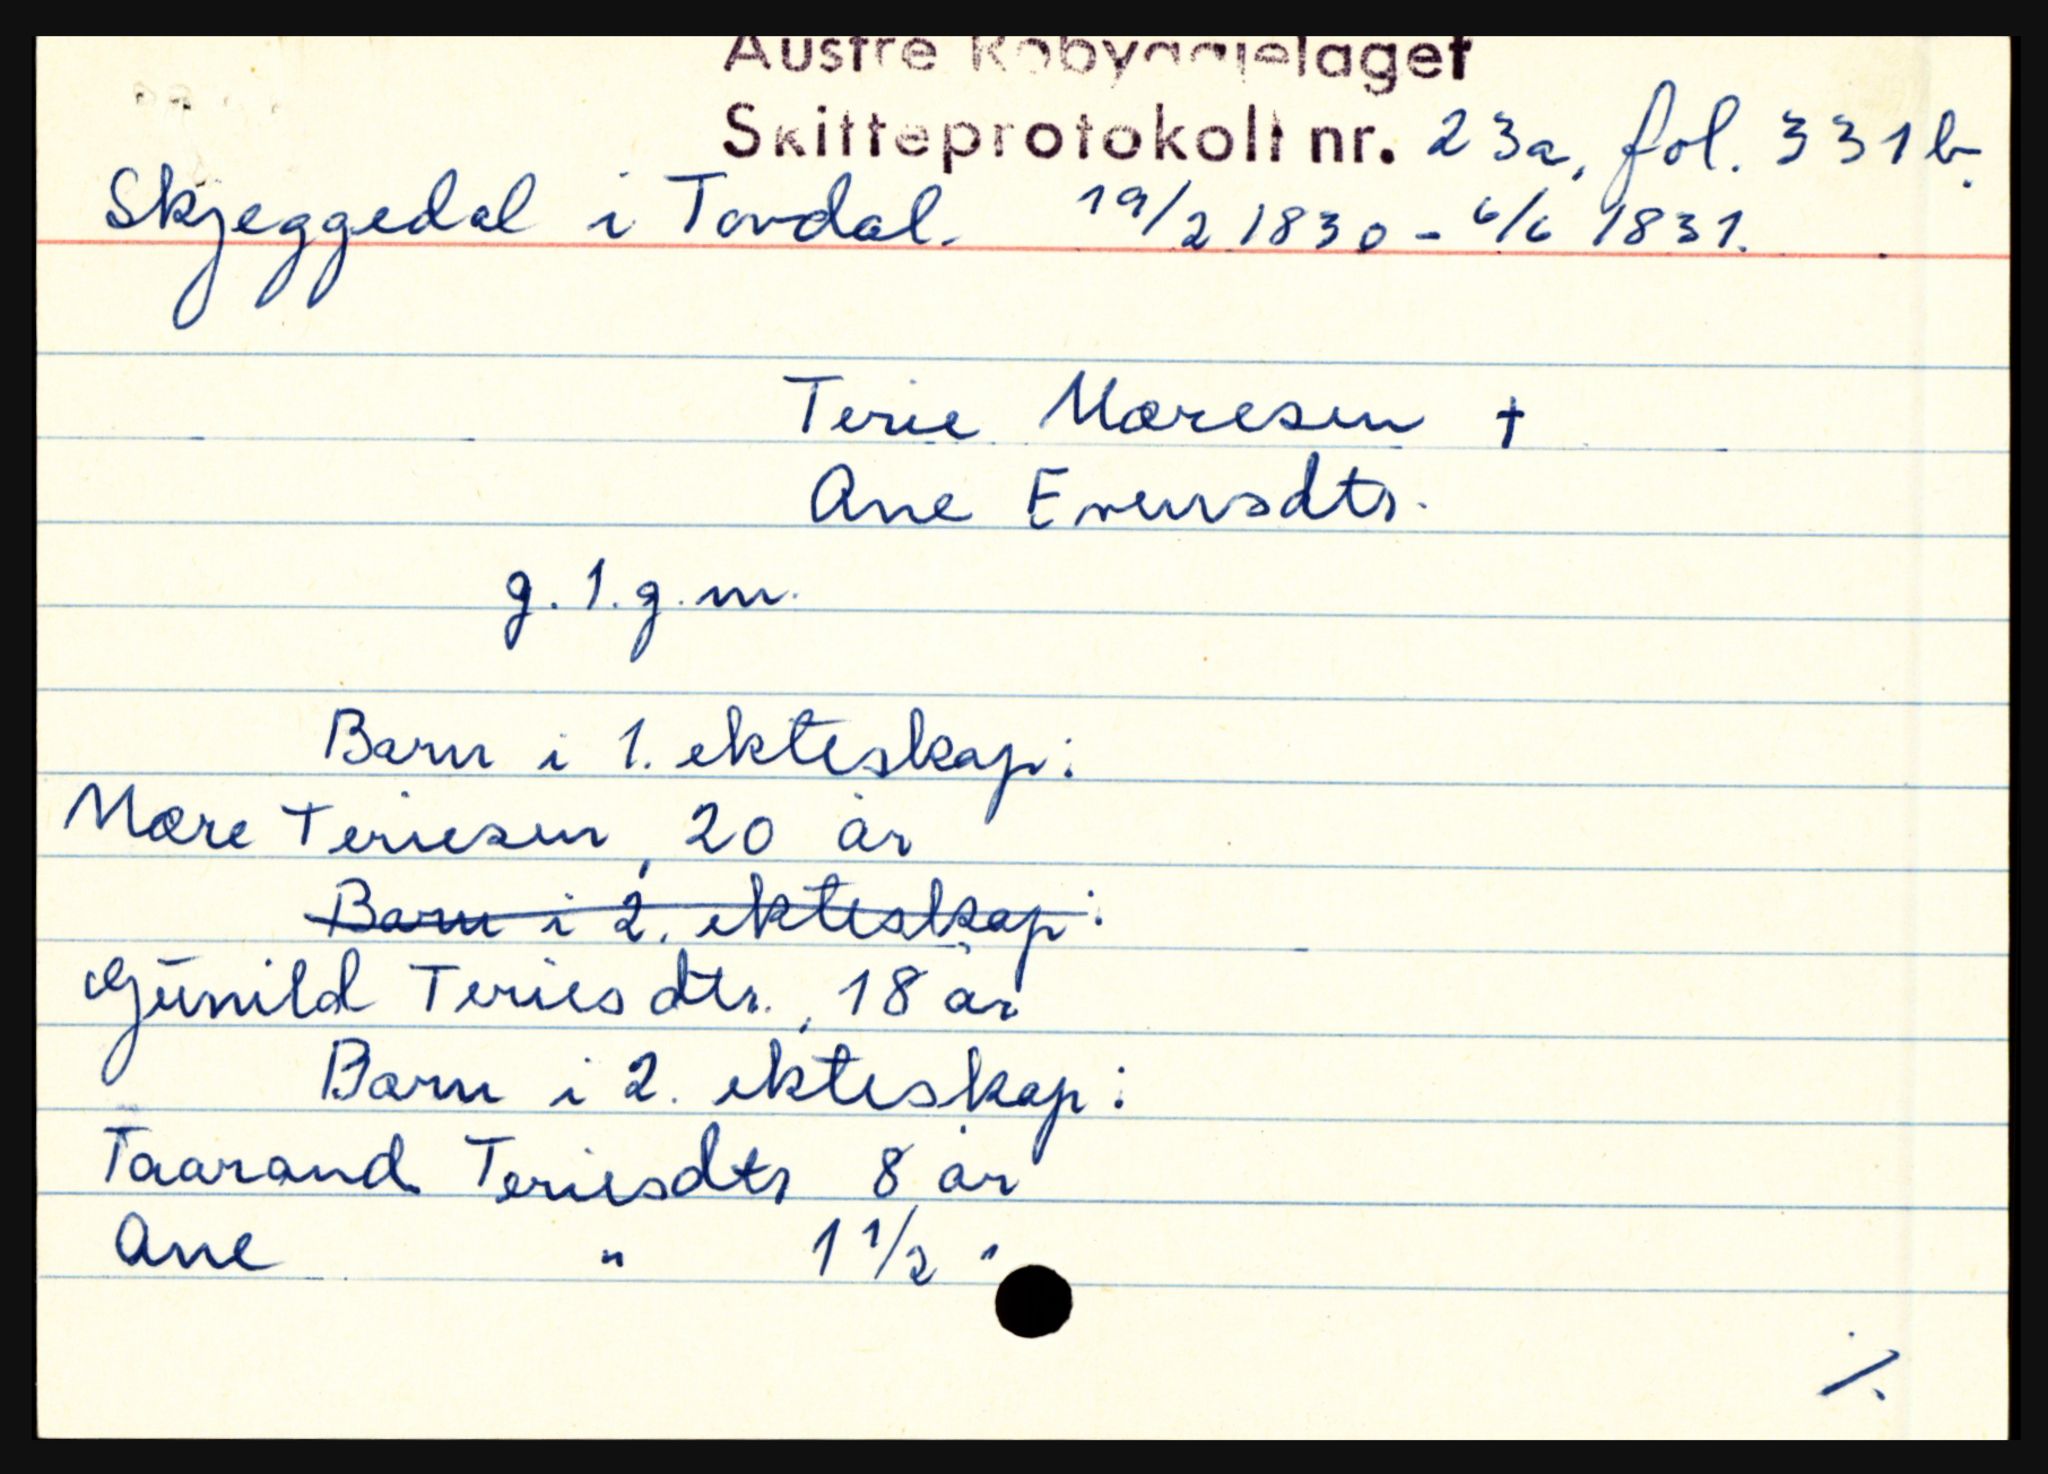 Austre Robyggjelaget
Skifteprotokoll nr. 23a, fol. 331b.
Skjeggedal i Tovdal. 19/2 1830 - 6/6 1831.
Terie Møresen †
Ane Evensdtr.
g. 1. g. m.
Barn i 1. ekteskap:
Møre Teriesen, 20 år
Barn i 2. ekteskap:
Gunild Teriesdtr., 18 år
Barn i 2. ekteskap:
Taarand Teriesdtr 8 år
Ane " 1 1/2 "
./.